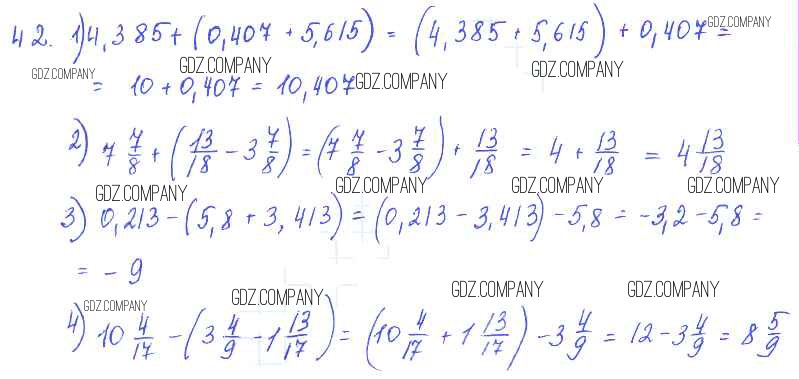 42. 1) 4,385 + (0,407 + 5,615) = (4,385 + 5,615) + 0,407 = GDZ.COMPANY
GDZ.COMPANY GDZ.COMPANY GDZ.COMPANY
= 10 + 0,407 = 10,407 GDZ.COMPANY
2) 7 7/8 + (13/18 - 3 7/8) = (7 7/8 - 3 7/8) + 13/18 = 4 + 13/18 = 4 13/18
GDZ.COMPANY GDZ.COMPANY GDZ.COMPANY GDZ.COMPANY
3) 0,213 - (5,8 + 3,413) = (0,213 - 3,413) - 5,8 = -3,2 - 5,8 =
= - 9
GDZ.COMPANY GDZ.COMPANY GDZ.COMPANY GDZ.COMPANY
4) 10 4/17 - (3 4/9 - 1 13/17) = (10 4/17 + 1 13/17) - 3 4/9 = 12 - 3 4/9 = 8 5/9